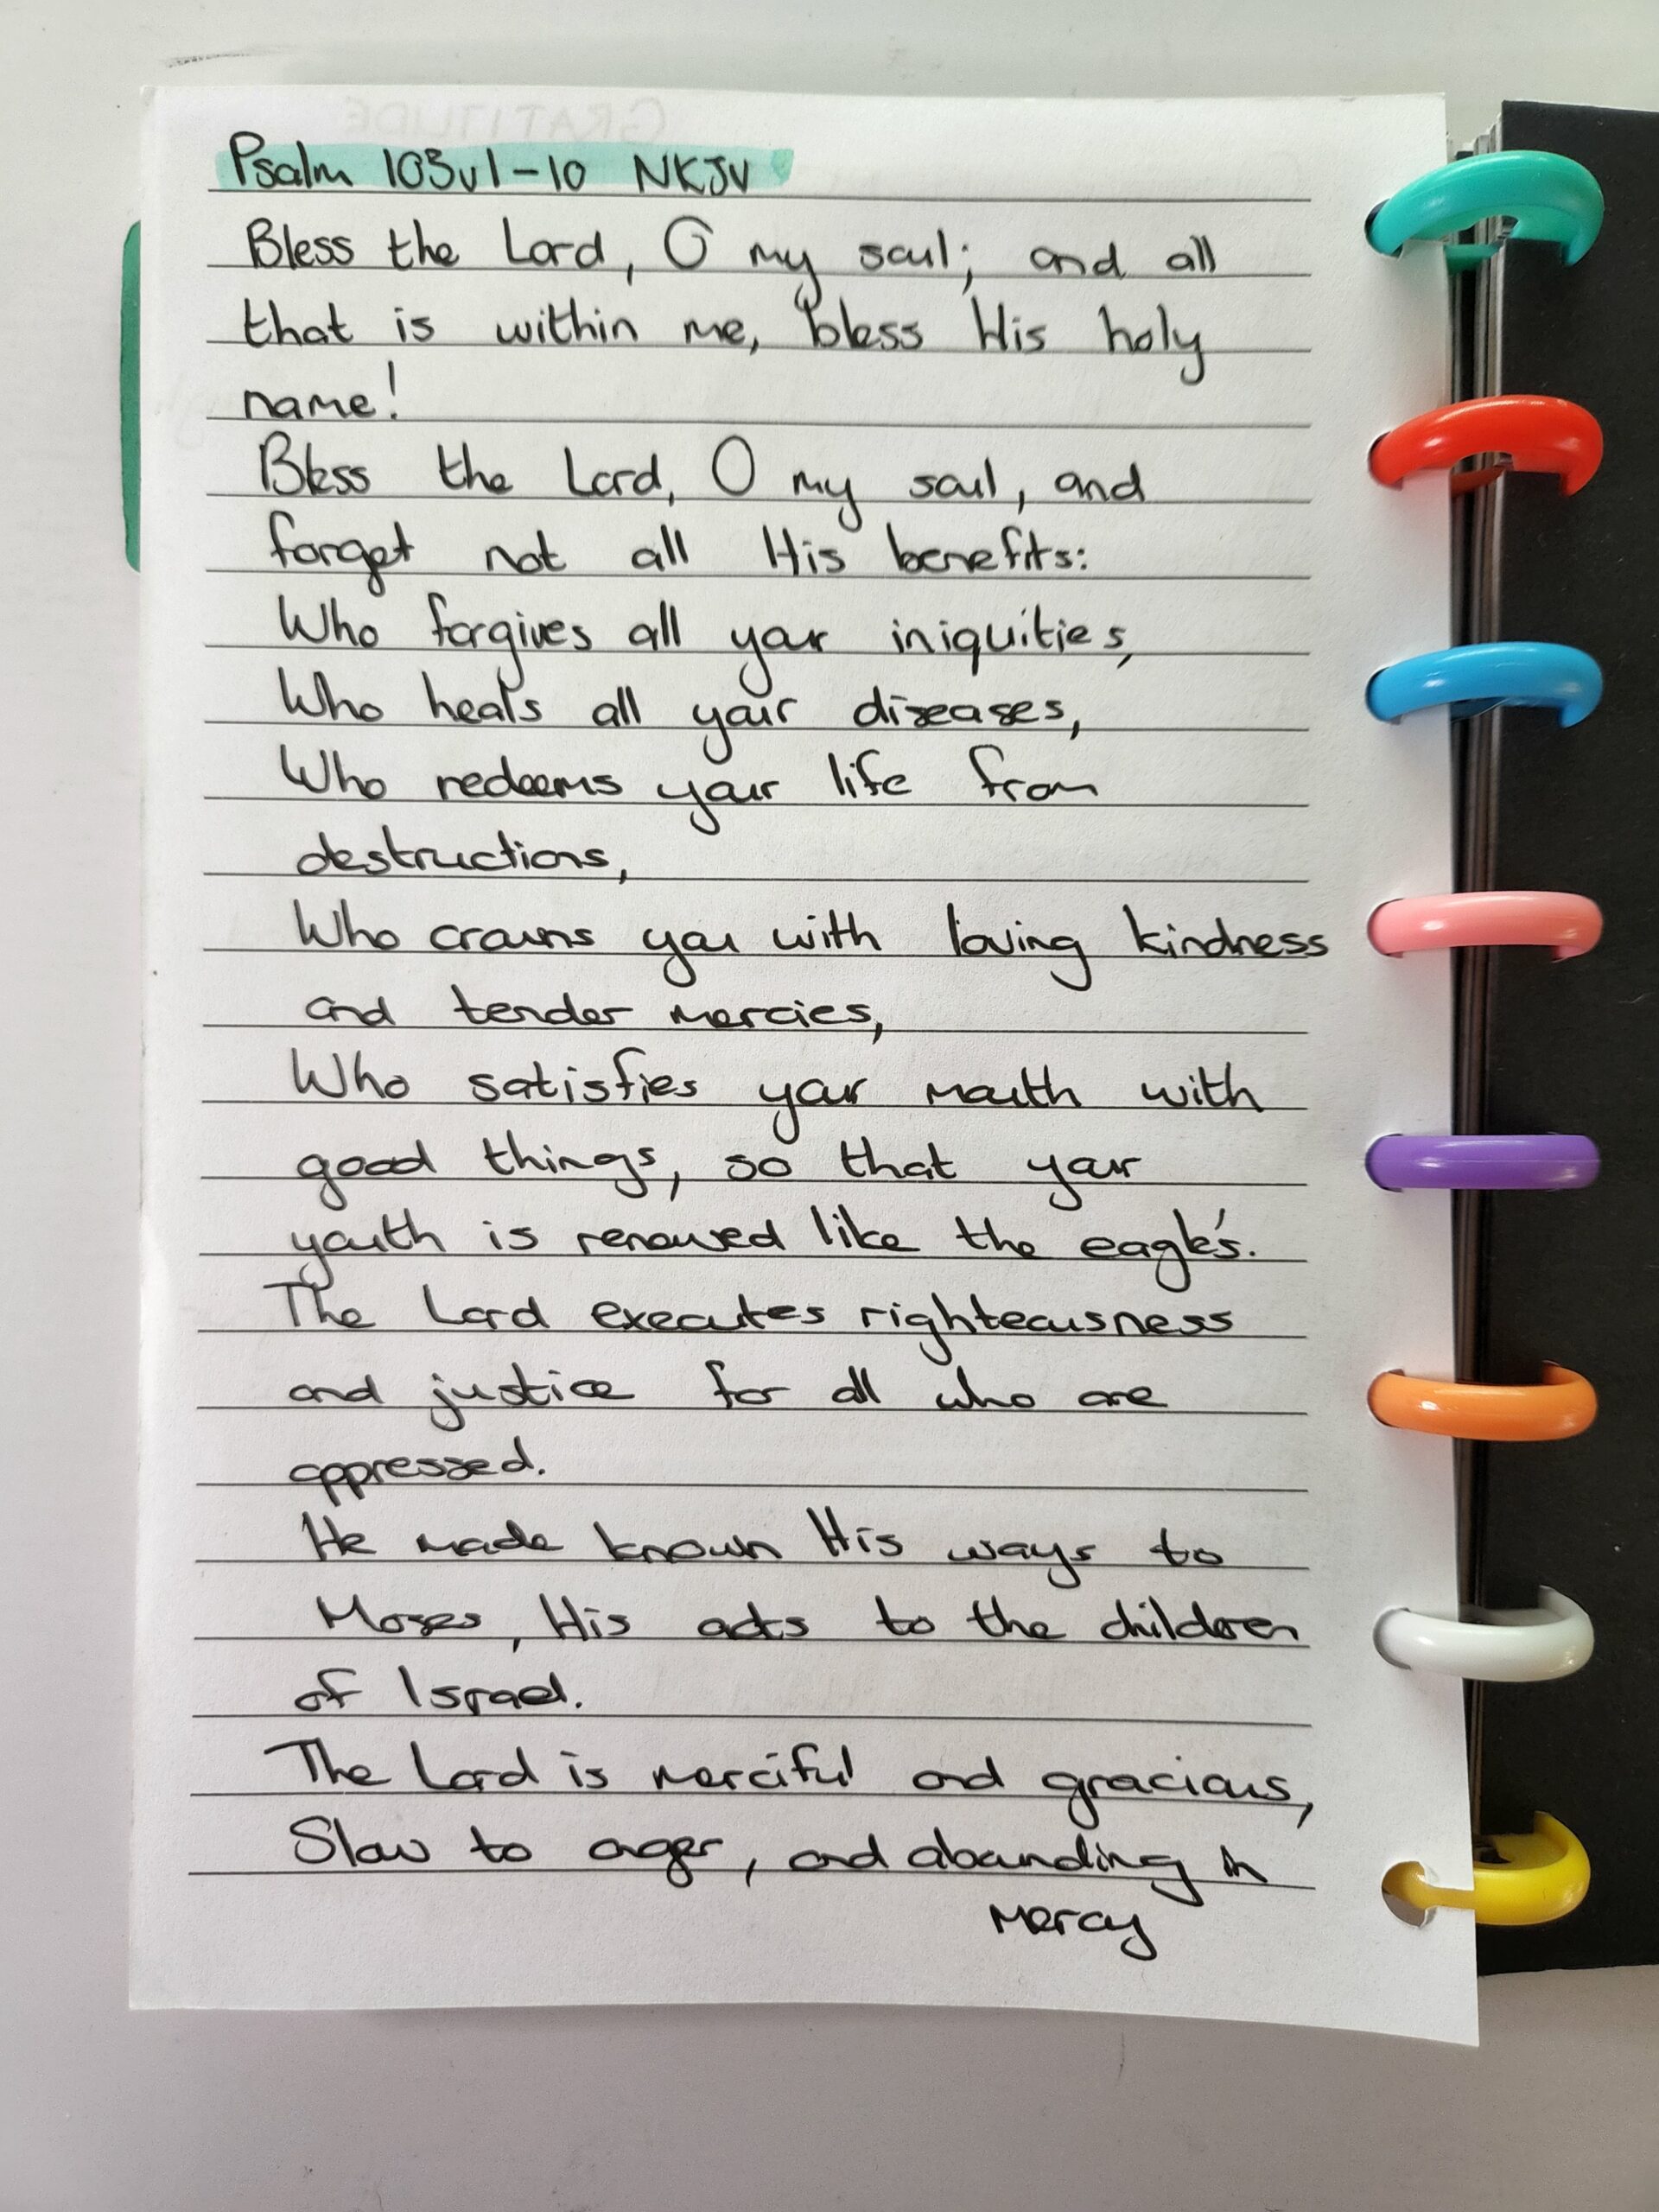 GRATITUDE
Psalm 103v1-10 NKJV
Bless the Lord, O my soul; and all
that is within me, bless His holy
name!
Bless the Lord, O my soul, and
forget not all His benefits:
Who forgives all your iniquities,
Who heals all your diseases,
Who redeems your life from
destructions,
Who crowns you with loving kindness
and tender mercies,
Who satisfies your mouth with
good things, so that your
youth is renewed like the eagle's.
The Lord executes righteousness
and justice for all who are
oppressed.
He made known His ways to
Moses, His acts to the children
of Israel.
The Lord is merciful and gracious,
Slow to anger, and abounding in
mercy